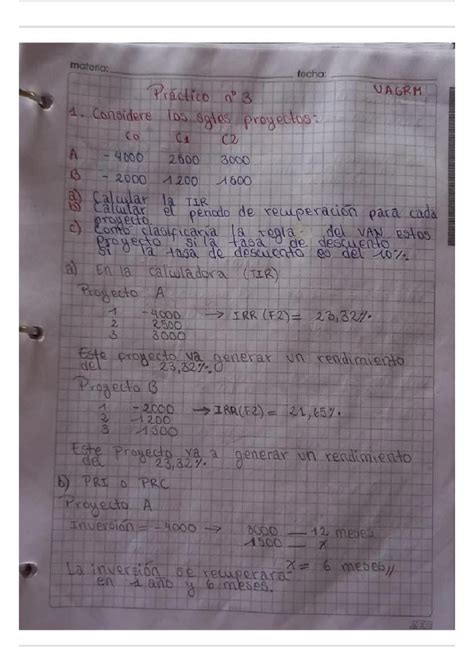 materia: fecha:
Práctico nº 3 UAGRM
1. Considere los sgtes proyectos:
C0 C1 C2
A -4000 2500 3000
B -2000 1200 1500
a) Calcular la TIR
b) Calcular el periodo de recuperación para cada
proyecto
c) Como clasificaría la regla del VAN estos
proyecto si la tasa de descuento
si la tasa de descuento es del 10%.
a) En la calculadora (TIR)
Proyecto A
1 -4000 → IRR (F2) = 23,32%.
2 2500
3 3000
Este proyecto va generar un rendimiento
del 23,32%.
Proyecto B
1 -2000 → IRR(F2) = 21,65%.
2 -1200
3 -1500
Este Proyecto va a generar un rendimiento
del 23,32%.
b) PRI o PRC
Proyecto A
Inversión = -4000 → 3000 — 12 meses
1500 — x
x = 6 meses//
La inversión se recuperara
en 1 año y 6 meses.